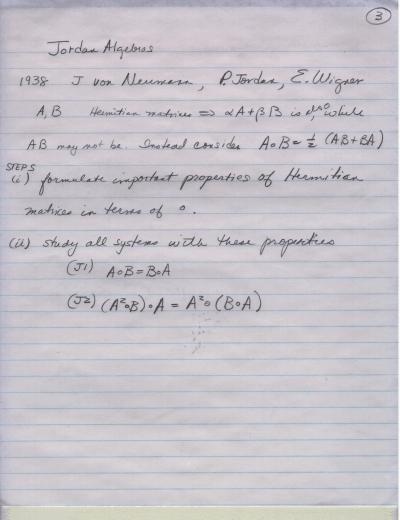 3
Jordan Algebras
1938 J von Neumann, P. Jordan, E. Wigner
A, B Hermitian matrices ⇒ αA+βB is also, while
AB may not be. Instead consider A∘B = 1/2 (AB+BA)
STEPS
(i) formulate important properties of Hermitian
matrices in terms of ∘.
(ii) study all systems with these properties
(J1) A∘B = B∘A
(J2) (A²∘B)∘A = A²∘(B∘A)